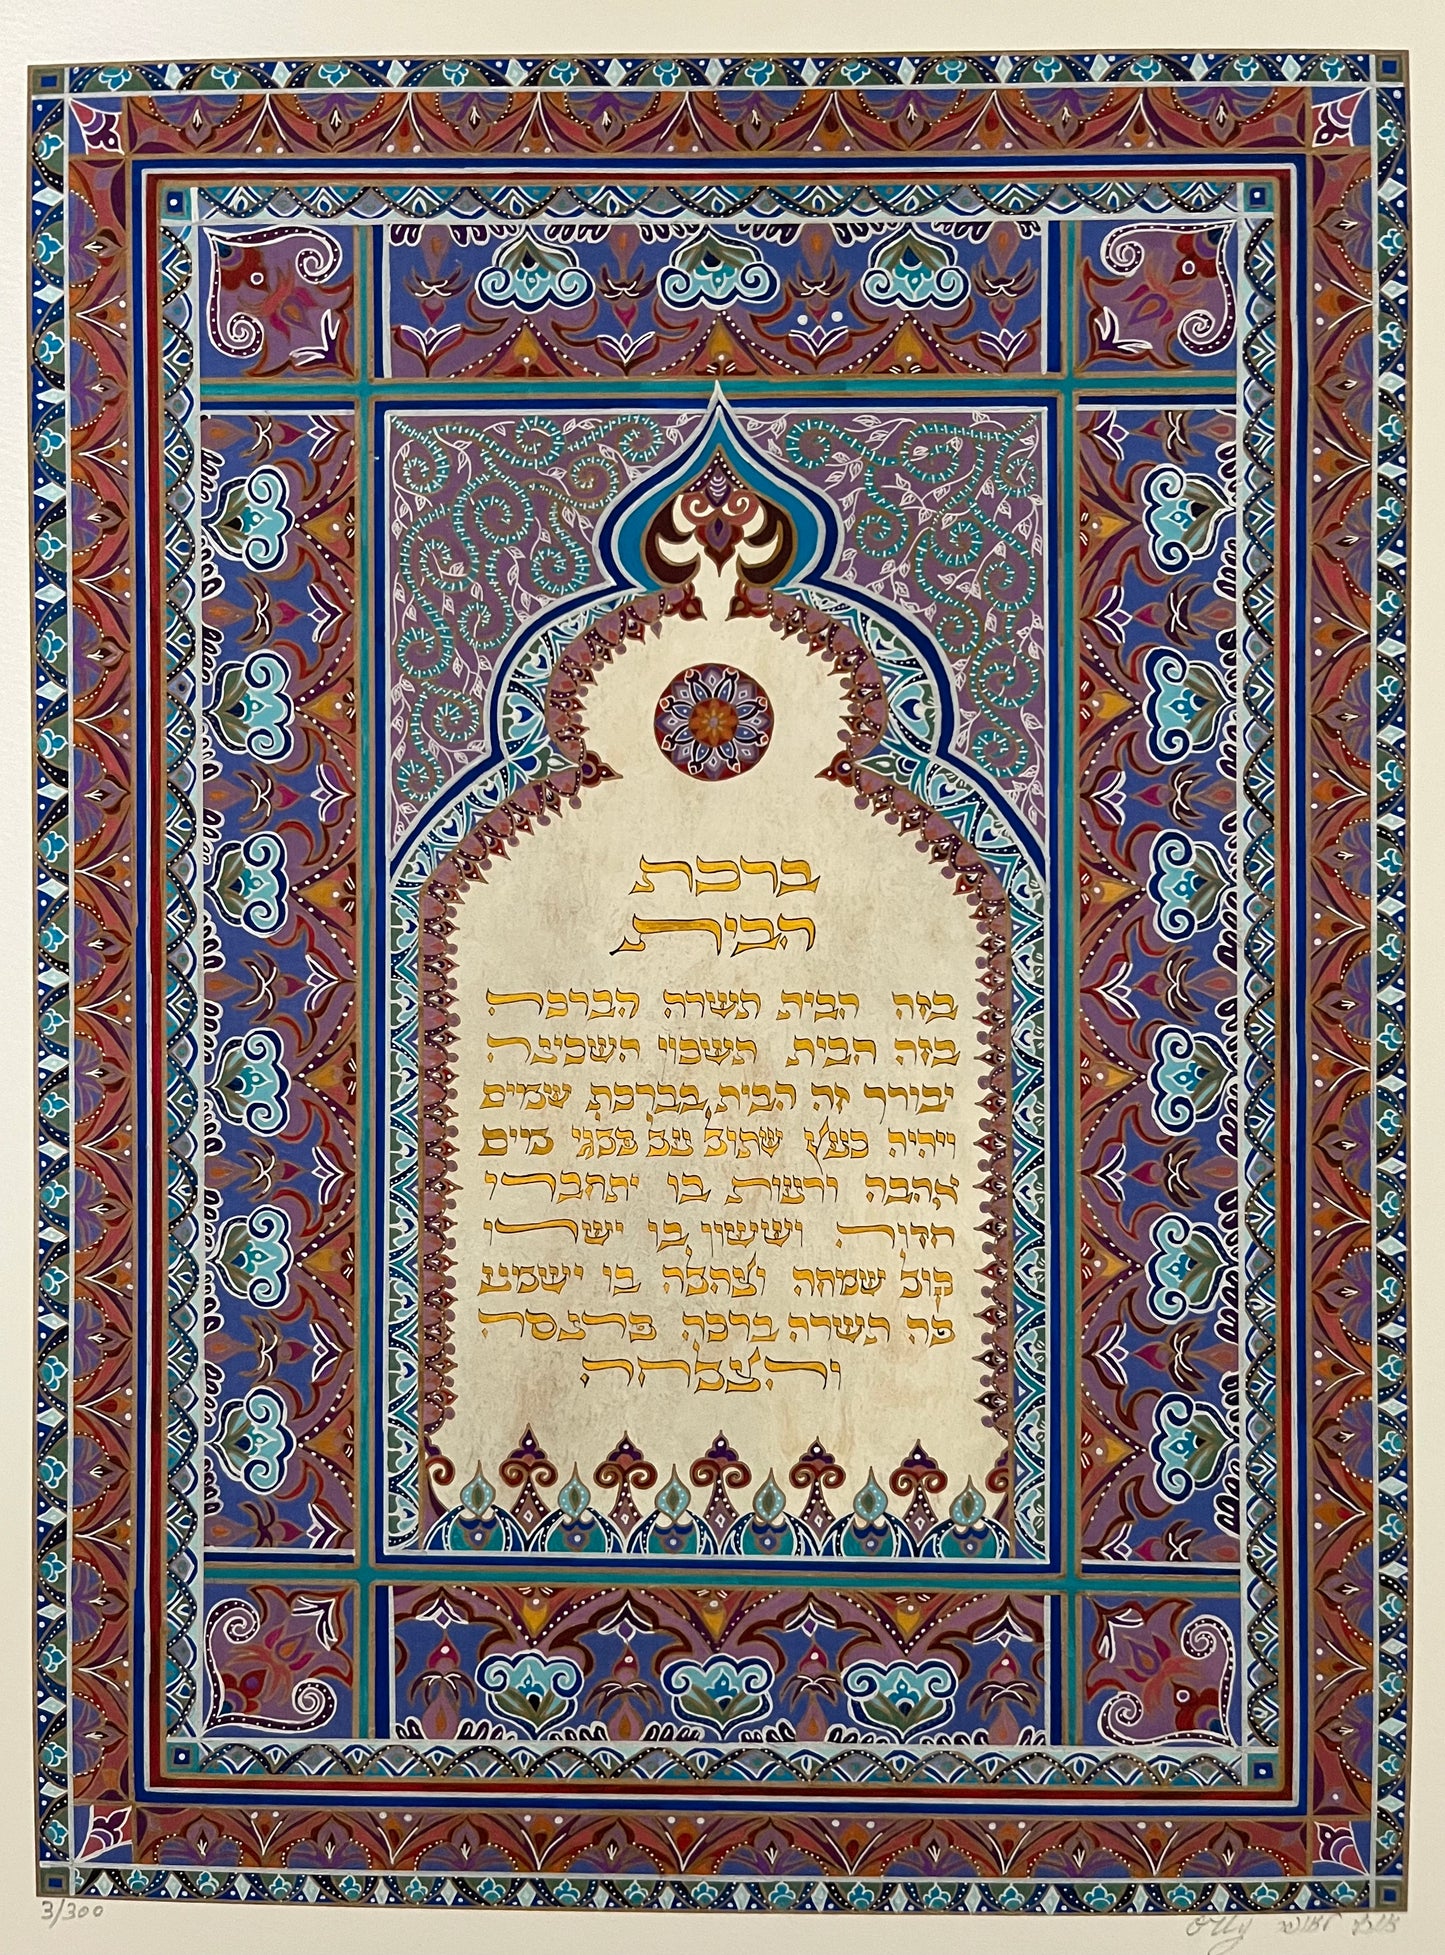 ברכת
הבית
בזה הבית תשרה הברכה
בזה הבית תשכון השכינה
יבורך זה הבית בברכת שמים
ויהיה כעץ שתול על פלגי מים
אהבה ורעות בו יתחברו
חדוה וששון בו ישרו
קול שמחה וצהלה בו ישמע
פה תשרה ברכה פרנסה
והצלחה
3/300
Orly